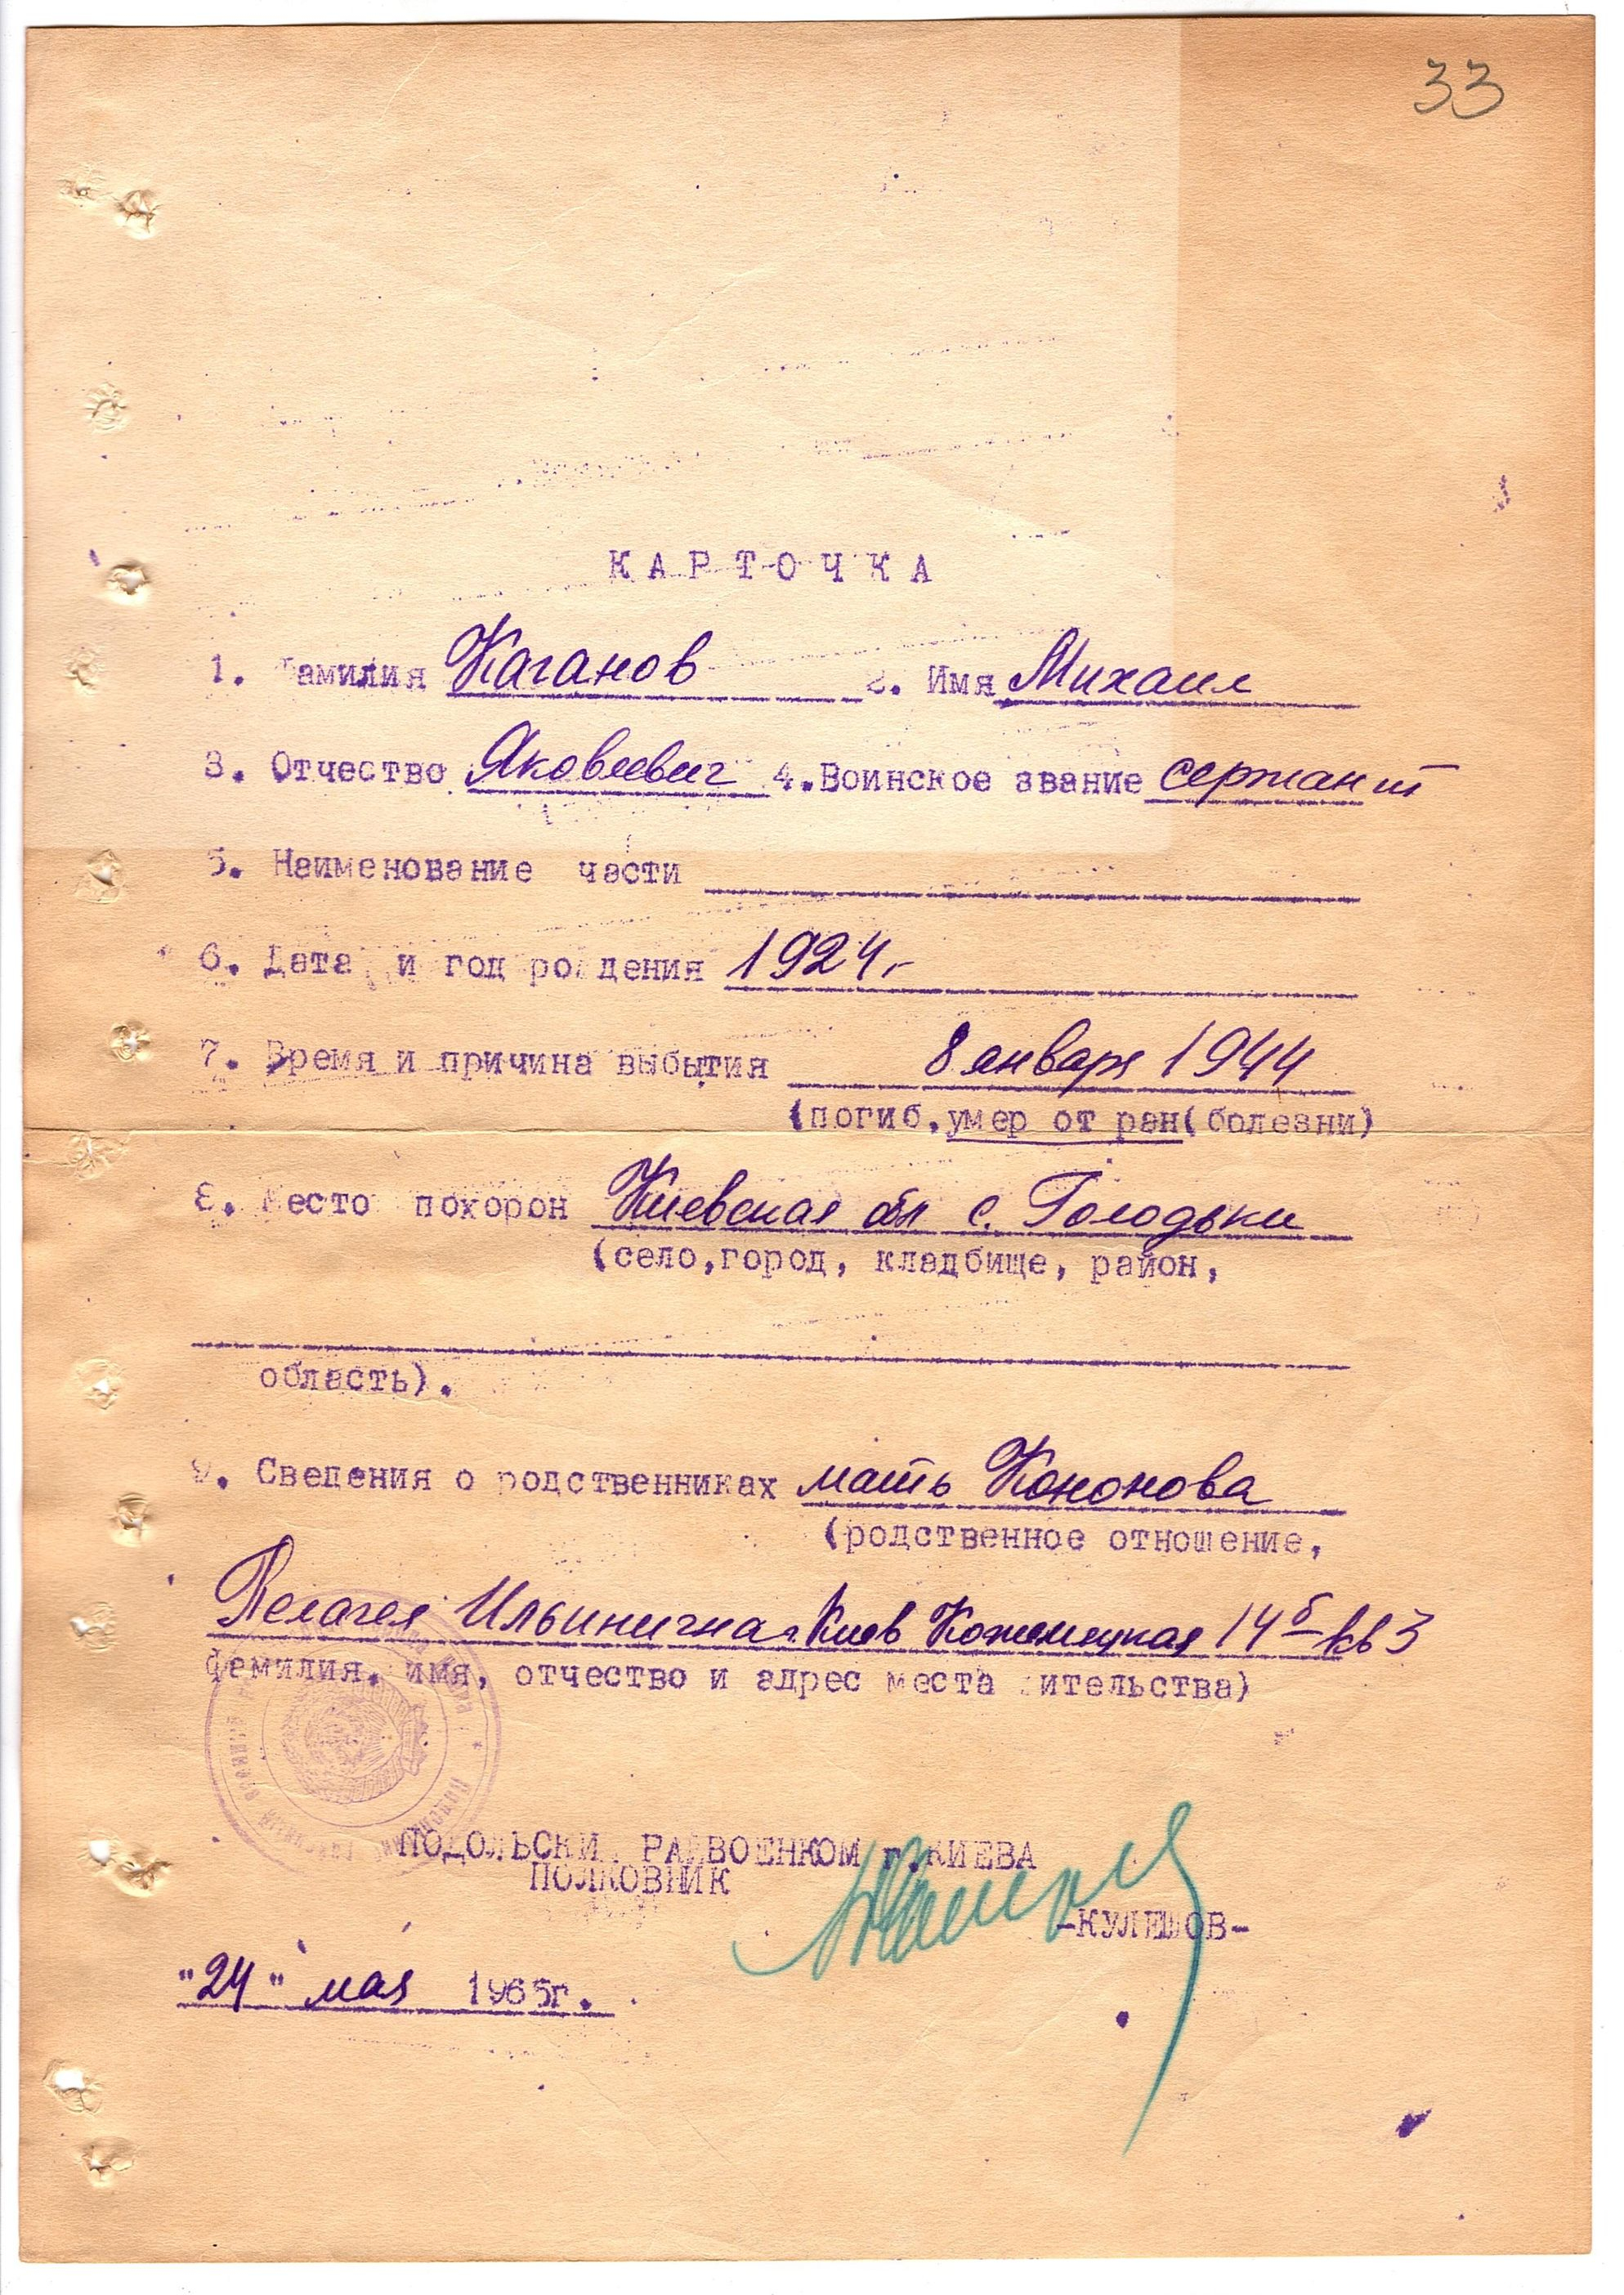 33
КАРТОЧКА
1. Фамилия Каганов 2. Имя Михаил
3. Отчество Яковлевич 4. Воинское звание сержант
5. Наименование части
6. Дата и год рождения 1924.-
7. Время и причина выбытия 8 января 1944
(погиб, умер от ран(болезни)
8. Место похорон Киевская обл с. Голодьки
(село, город, кладбище, район,
область).
9. Сведения о родственниках мать Кононова
(родственное отношение,
Пелагея Ильинична г. Киев Кожемяцкая 14б кв 3
фамилия, имя, отчество и адрес места жительства)
ПОДОЛЬСКИЙ РАЙВОЕНКОМ г. КИЕВА
ПОЛКОВНИК
-КУЛЕШОВ-
"24" мая 1965г.